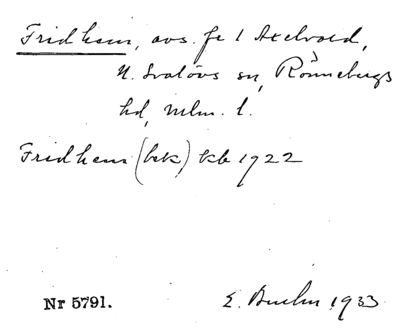 Fridhem, avs. fr 1 Axelvold,
N. Svalövs sn, Rönnebergs
hd, Mlm. l.
Fridhem (bsk) kb 1922
Nr 5791.
E. 1933